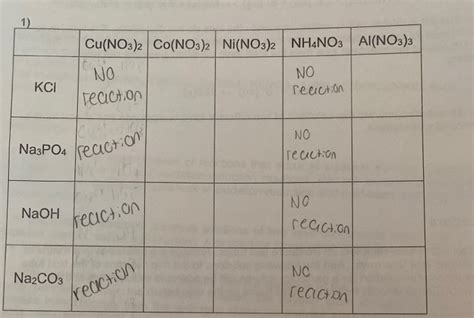 1)
Cu(NO3)2 Co(NO3)2 Ni(NO3)2 NH4NO3 Al(NO3)3
KCl NO reaction NO reaction
Na3PO4 reaction NO reaction
NaOH reaction NO reaction
Na2CO3 reaction NO reaction